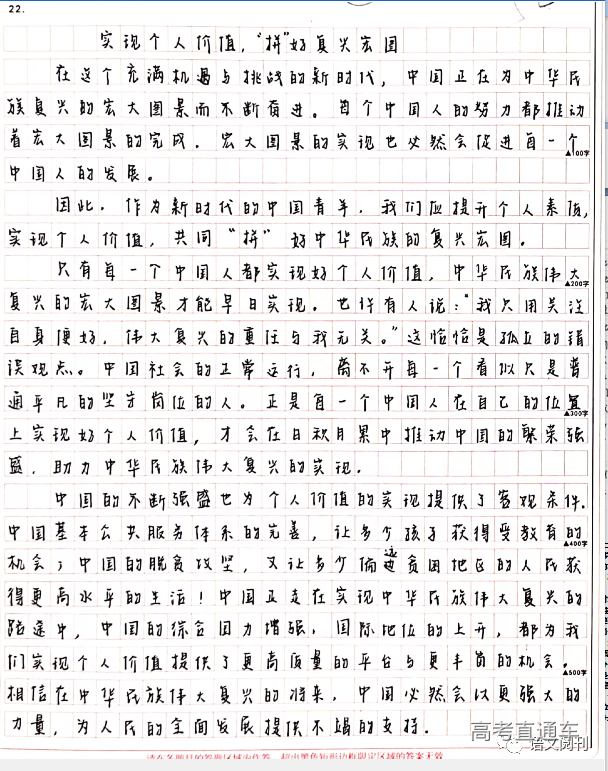 22.
实现个人价值，“拼”好复兴宏图
在这个充满机遇与挑战的新时代，中国正在为中华民
族复兴的宏大图景而不断奋进。每个中国人的努力都推动
着宏大图景的完成。宏大图景的实现也必然会促进每一个
▲100字
中国人的发展。
因此，作为新时代的中国青年，我们应提升个人素质，
实现个人价值，共同“拼”好中华民族的复兴宏图。
只有每一个中国人都实现好个人价值，中华民族伟大
▲200字
复兴的宏大图景才能早日实现。也许有人说：“我只用关注
自身便好，伟大复兴的重任与我无关。”这恰恰是孤立的错
误观点。中国社会的正常运行，离不开每一个看似只是普
通平凡的坚守岗位的人。正是每一个中国人在自己的位置
▲300字
上实现好个人价值，才会在日积月累中推动中国的繁荣强
盛，助力中华民族伟大复兴的实现。
中国的不断强盛也为个人价值的实现提供了客观条件。
中国基本公共服务体系的完善，让多少孩子获得受教育的
▲400字
机会；中国的脱贫攻坚，又让多少偏远贫困地区的人民获
得更高水平的生活！中国正走在实现中华民族伟大复兴的
路途中，中国的综合国力增强，国际地位的上升，都为我
们实现个人价值提供了更高质量的平台与更丰富的机会。
▲500字
相信在中华民族伟大复兴的将来，中国必然会以更强大的
力量，为人民的全面发展提供不竭的支持。
高考直通车
语文阅刊
请在各题目的答题区域内作答，超出黑色矩形边框限定区域的答案无效